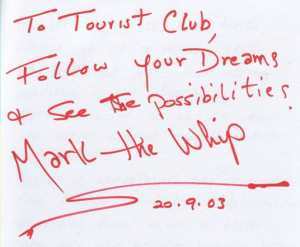 To Tourist Club,
Follow your Dreams
& See the possibilities!
Mark the Whip
20.9.03